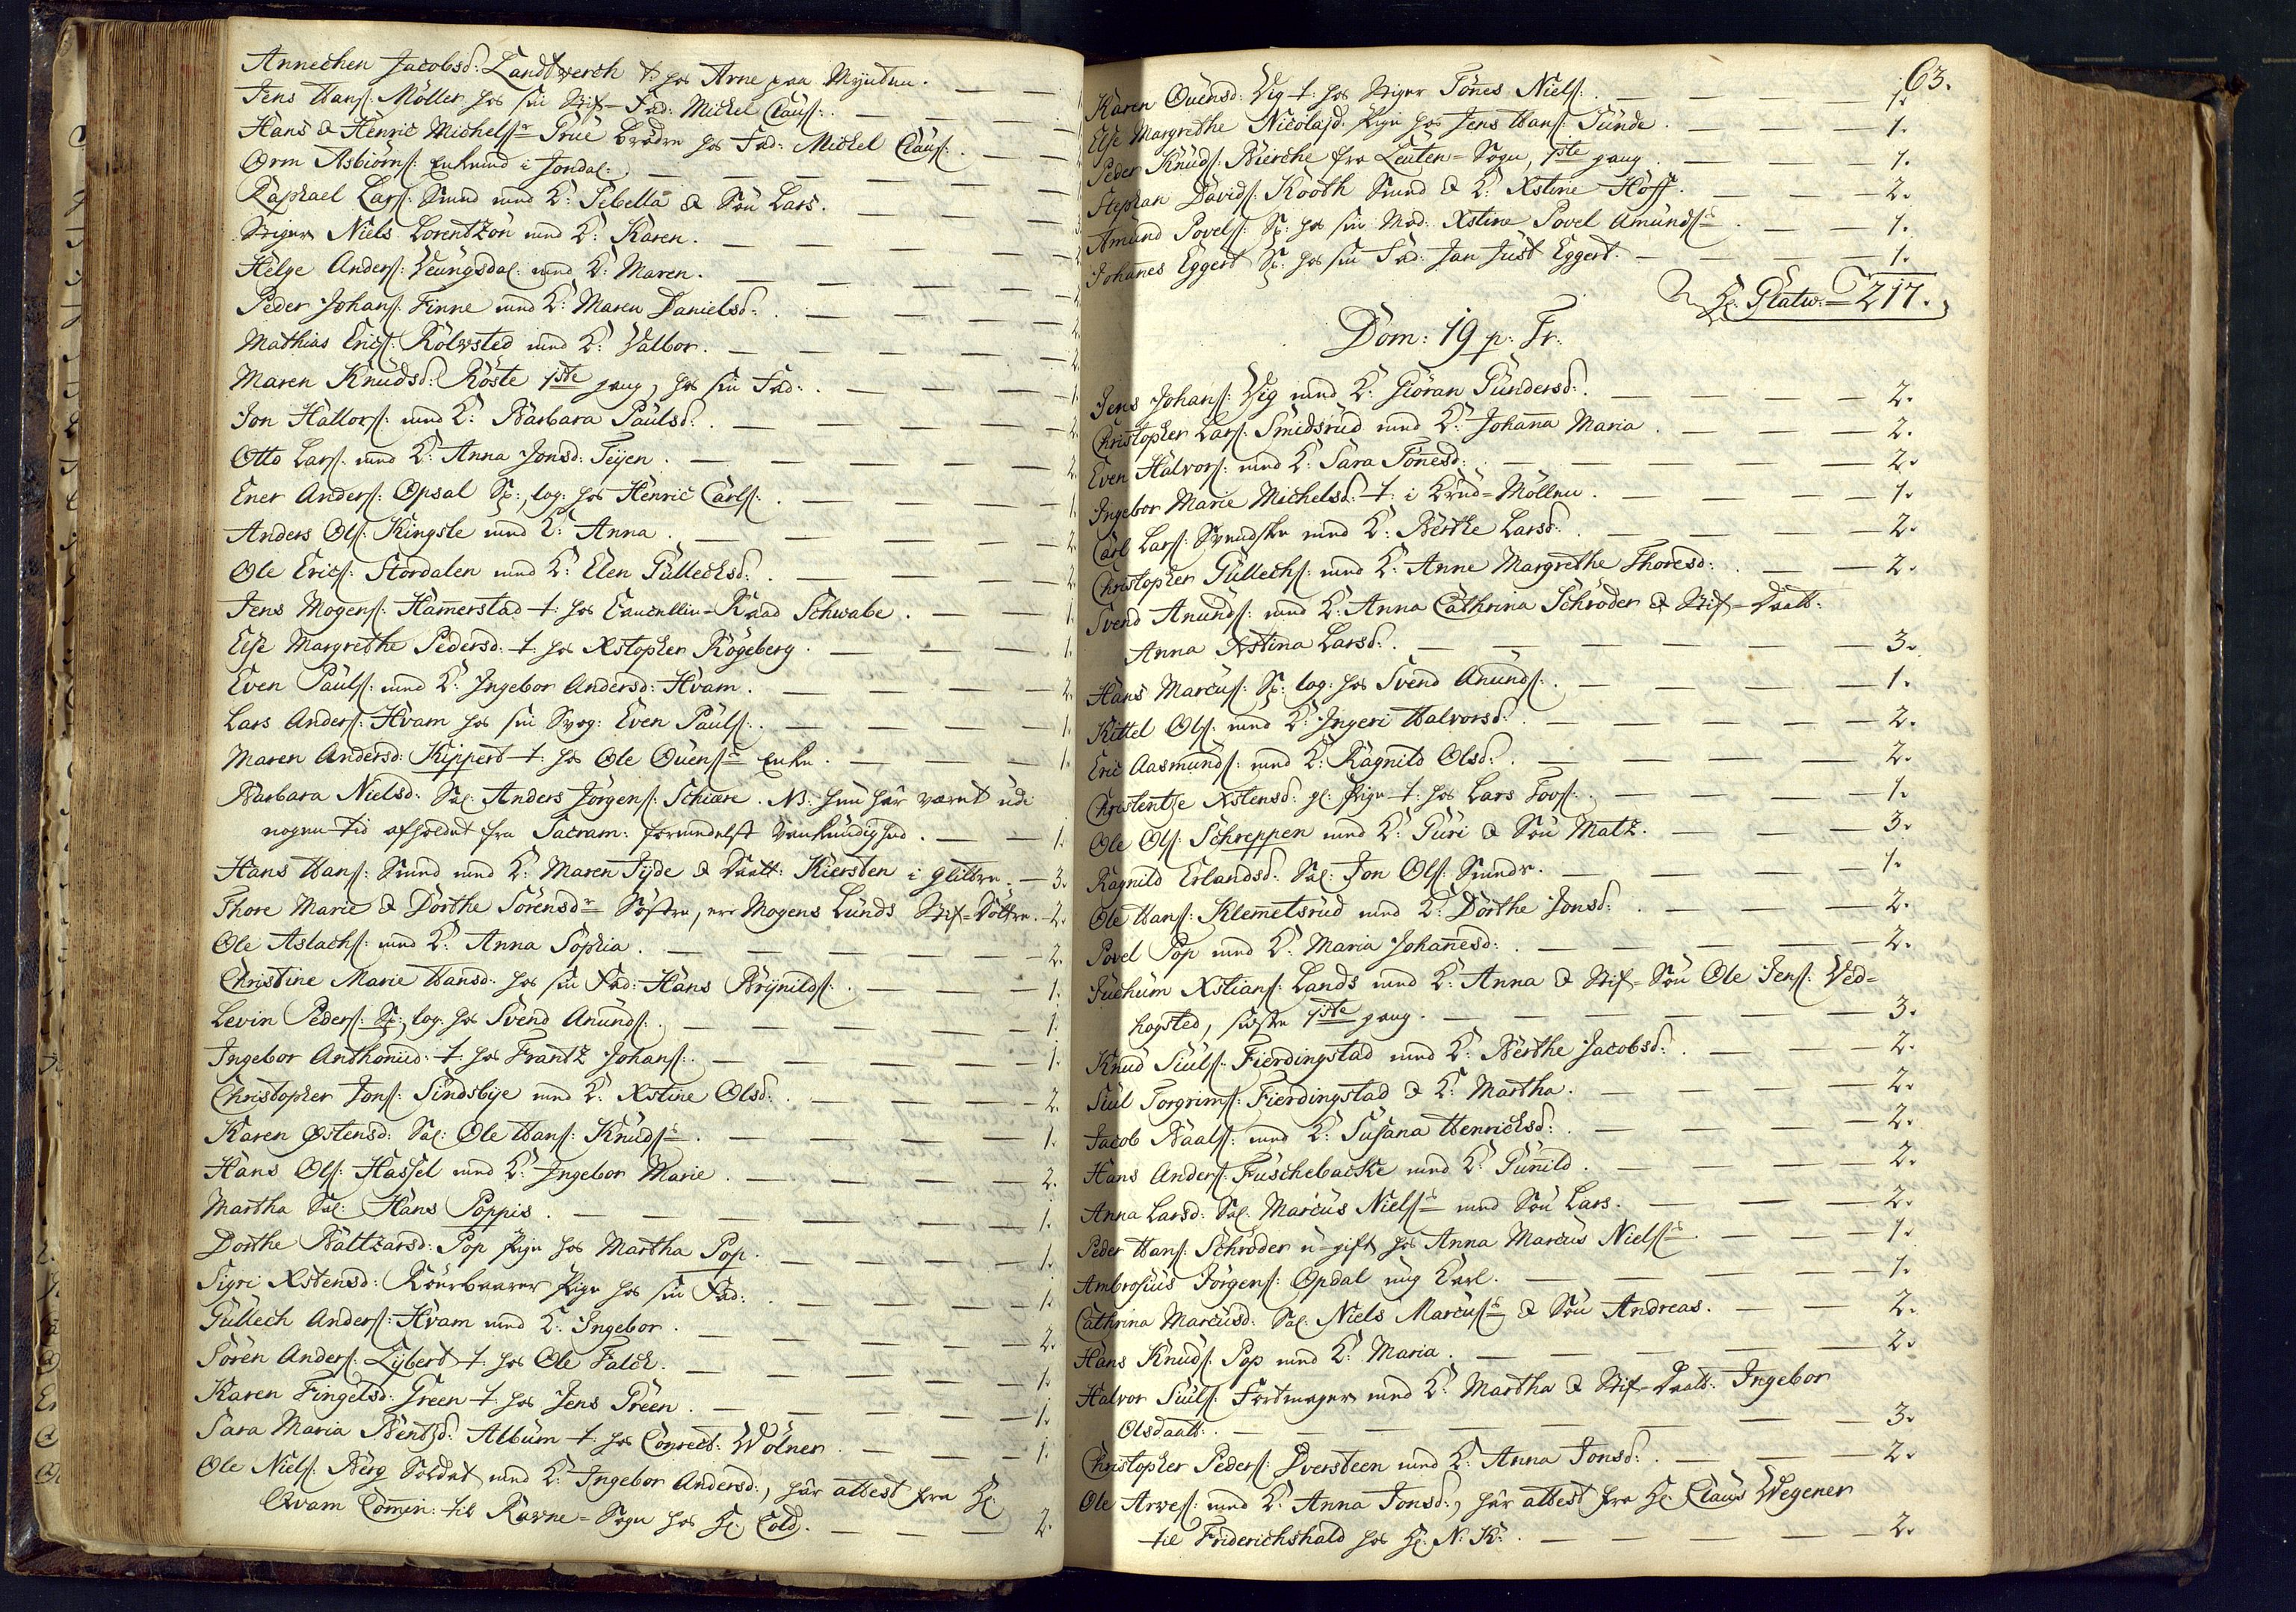 Annechen Jacobsd: Landtwerch t: hos Arne paa Mynten. — — 1.
Jens Hans: Möller hos sin Stif-Fad: Michel Claus: . — — — 1.
Hans & Henric Michels: Prüe brödre hos Fad: Michel Claus: . — — 2.
Orm Asbiörns: Enkemd i Jondal: — — — — — 1.
Raphael Lars: Smed med K: Sebella & Sön Lars. — — — — 3.
Stiger Niels Lorentzon med K: Karen. — — — — 2.
Helge Anders: Veungsdal: med K: Maren. — — — — 2.
Peder Johans: Finne med K: Maren Danielsd: . — — — — 2.
Mathias Erics: Rolvsted med K: Valbor. — — — — 2.
Maren Knudsd: Röste 1ste gang, hos sin Fad: . — — — — 1.
Jon Hallors: med K: Barbara Paulsd: . — — — — 2.
Otto Lars: med K: Anna Jonsd: Teijen. — — — — 2.
Ener Anders: Opsal S:, log: hos Henric Carls: . — — — — 1.
Anders Ols: Kingsle med K: Anna. — — — — 2.
Ole Erics: Stordalen med K: Elen Gullechsd: . — — — — 2.
Jens Mogens: Hamerstad t: hos Cancellie-Raad Schwabe. — — 1.
Else Margrethe Pedersd: t: hos Xstopher Rögeberg. — — — 1.
Even Pauls: med K: Ingebor Andersd: Hvam. — — — 2.
Lars Anders: Hvam hos sin Svog: Even Pauls: . — — — — 1.
Maren Andersd: Kippert t: hos Ole Ouens: Enke. — — — 1.
Barbara Nielsd: Sal: Anders Jörgens: Schiære. NB: hun har været udi
nogen tid afholdet fra Sacram: formedelst Vankundighed. — — 1.
Hans Hans: Smed med K: Maren Tyde & Datt: Kiersten i Glittre. — 3.
Thore Marie & Dorthe Sörensdr Söstre, ere Mogens Lunds Stif-Döttre. — 2.
Ole Aslachs: med K: Anna Sophia. — — — — 2.
Christine Marie Hansd: hos sin Fad: Hans Brynilds: . — — — 1.
Levin Peders: S:, log: hos Svend Anunds: . — — — — 1.
Ingebor Anthonud: t: hos Frantz Johans: . — — — — 1.
Christopher Jons: Sindsbye med K: Xstine Olsd: . — — — 2.
Karen Østensd: Sal: Ole Hans: Knuds: . — — — — 1.
Hans Ols: Hassel med K: Ingebor Marie. — — — — 2.
Martha Sal: Hans Poppis. — — — — — 1.
Dorthe Baltzarsd: Pop pige hos Martha Pop. — — — — 1.
Sigri Xstensd: Körbærer pige hos sin Fad: . — — — — 1.
Gullech Anders: Hvam med K: Ingebor. — — — — 2.
Sören Anders: Lybert t: hos Ole Falch. — — — — 1.
Karen Fingelsd: Green t: hos Jens Green. — — — — 1.
Sara Maria Bentsd: Album t: hos Conrect: Wölner. — — — 1.
Ole Niels: Berg Soldat med K: Ingebor Andersd:, har attest fra Hr:
Qvam Comin: til Ravne-Sogn hos Hr: Cold. — — — 2.
63.
Karen Ouensd: Vig t: hos Stiger Tönes Niels: . — — — — 1.
Else Margrethe Nicolajd: pige hos Jens Hans: Tunde. — — — 1.
Peder Knuds: Bierche fra Leuten-Sogn, 1ste gang. — — — 1.
Stephan Davids: Kooth Smed & K: Xstine Hoff. — — — 2.
Amund Povels: S: hos sin Mod: Xstine Povel Amunds: . — — 1.
Johanes Eggert S: hos sin Fad: Jan Just Eggert. — — — — 1.
Hr: Platw: = 217.
Dom: 19 p: Tr:
Jens Johans: Vig med K: Giöran Gundersd: . — — — — 2.
Christopher Lars: Smidsrud med K: Johana Maria. — — — 2.
Even Halvors: med K: Sara Tönesd: . — — — — 2.
Ingebor Marie Michelsd: t: i Krud-Möllen. — — — — 1.
Carl Lars: Svendske med K: Berthe Larsd: . — — — — 2.
Christopher Gullechs: med K: Anne Margrethe Thoresd: . — — 2.
Svend Anunds: med K: Anna Cathrina Schröder & Stif-Daatt:
Anna Xstina Larsd: . — — — — — 3.
Hans Marcus: S: log: hos Svend Anunds: . — — — — 1.
Kittel Ols: med K: Ingeri Halvorsd: . — — — — 2.
Eric Aasmunds: med K: Ragnild Olsd: . — — — — 2.
Christentze Xstensd: gl: pige t: hos Lars Toos: . — — — 1.
Ole Ols: Schreppen med K: Guri & Sön Matz. — — — 3.
Ragnild Erlandsd: Sal: Jon Ols: Smeds. — — — — 1.
Ole Hans: Klemetsrud med K: Dorthe Jonsd: . — — — 2.
Povel Pop med K: Maria Johanesd: . — — — — 2.
Juchum Xstians: Lands med K: Anna & Stif-Sön Ole Jens: Ved-
hogsted, sidste 1ste gang. — — — — — 3.
Knud Siuls: Fierdingstad med K: Berthe Jacobsd: . — — 2.
Siul Torgrims: Fierdingstad & K: Martha. — — — 2.
Jacob Baals: med K: Susana Henricksd: . — — — — 2.
Hans Anders: Fuschebacke med K: Gunild. — — — — 2.
Anna Larsd: Sal: Marcus Niels: med Sön Lars. — — — 2.
Peder Hans: Schröder u-gift hos Anna Marcus Niels: . — — 1.
Ambrosius Jörgens: Opdal ung Karl. — — — — 1.
Cathrina Marcusd: Sal: Niels Marcus: & Sön Andreas. — — 2.
Hans Knuds: Pop med K: Maria. — — — — 2.
Halvor Siuls: Fortmager med K: Martha & Stif-Daatt: Ingebor
Olsdaatt: . — — — — — 3.
Christopher Peders: Dversteen med K: Anna Jonsd: . — — 2.
Ole Arves: med K: Anna Jonsd:, har attest fra Hr: Claus Wegener
til Friderichshald hos Hr: N: K: . — — — — 2.